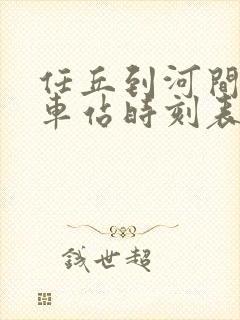 任丘到河間
車佔時刻表
錢世超